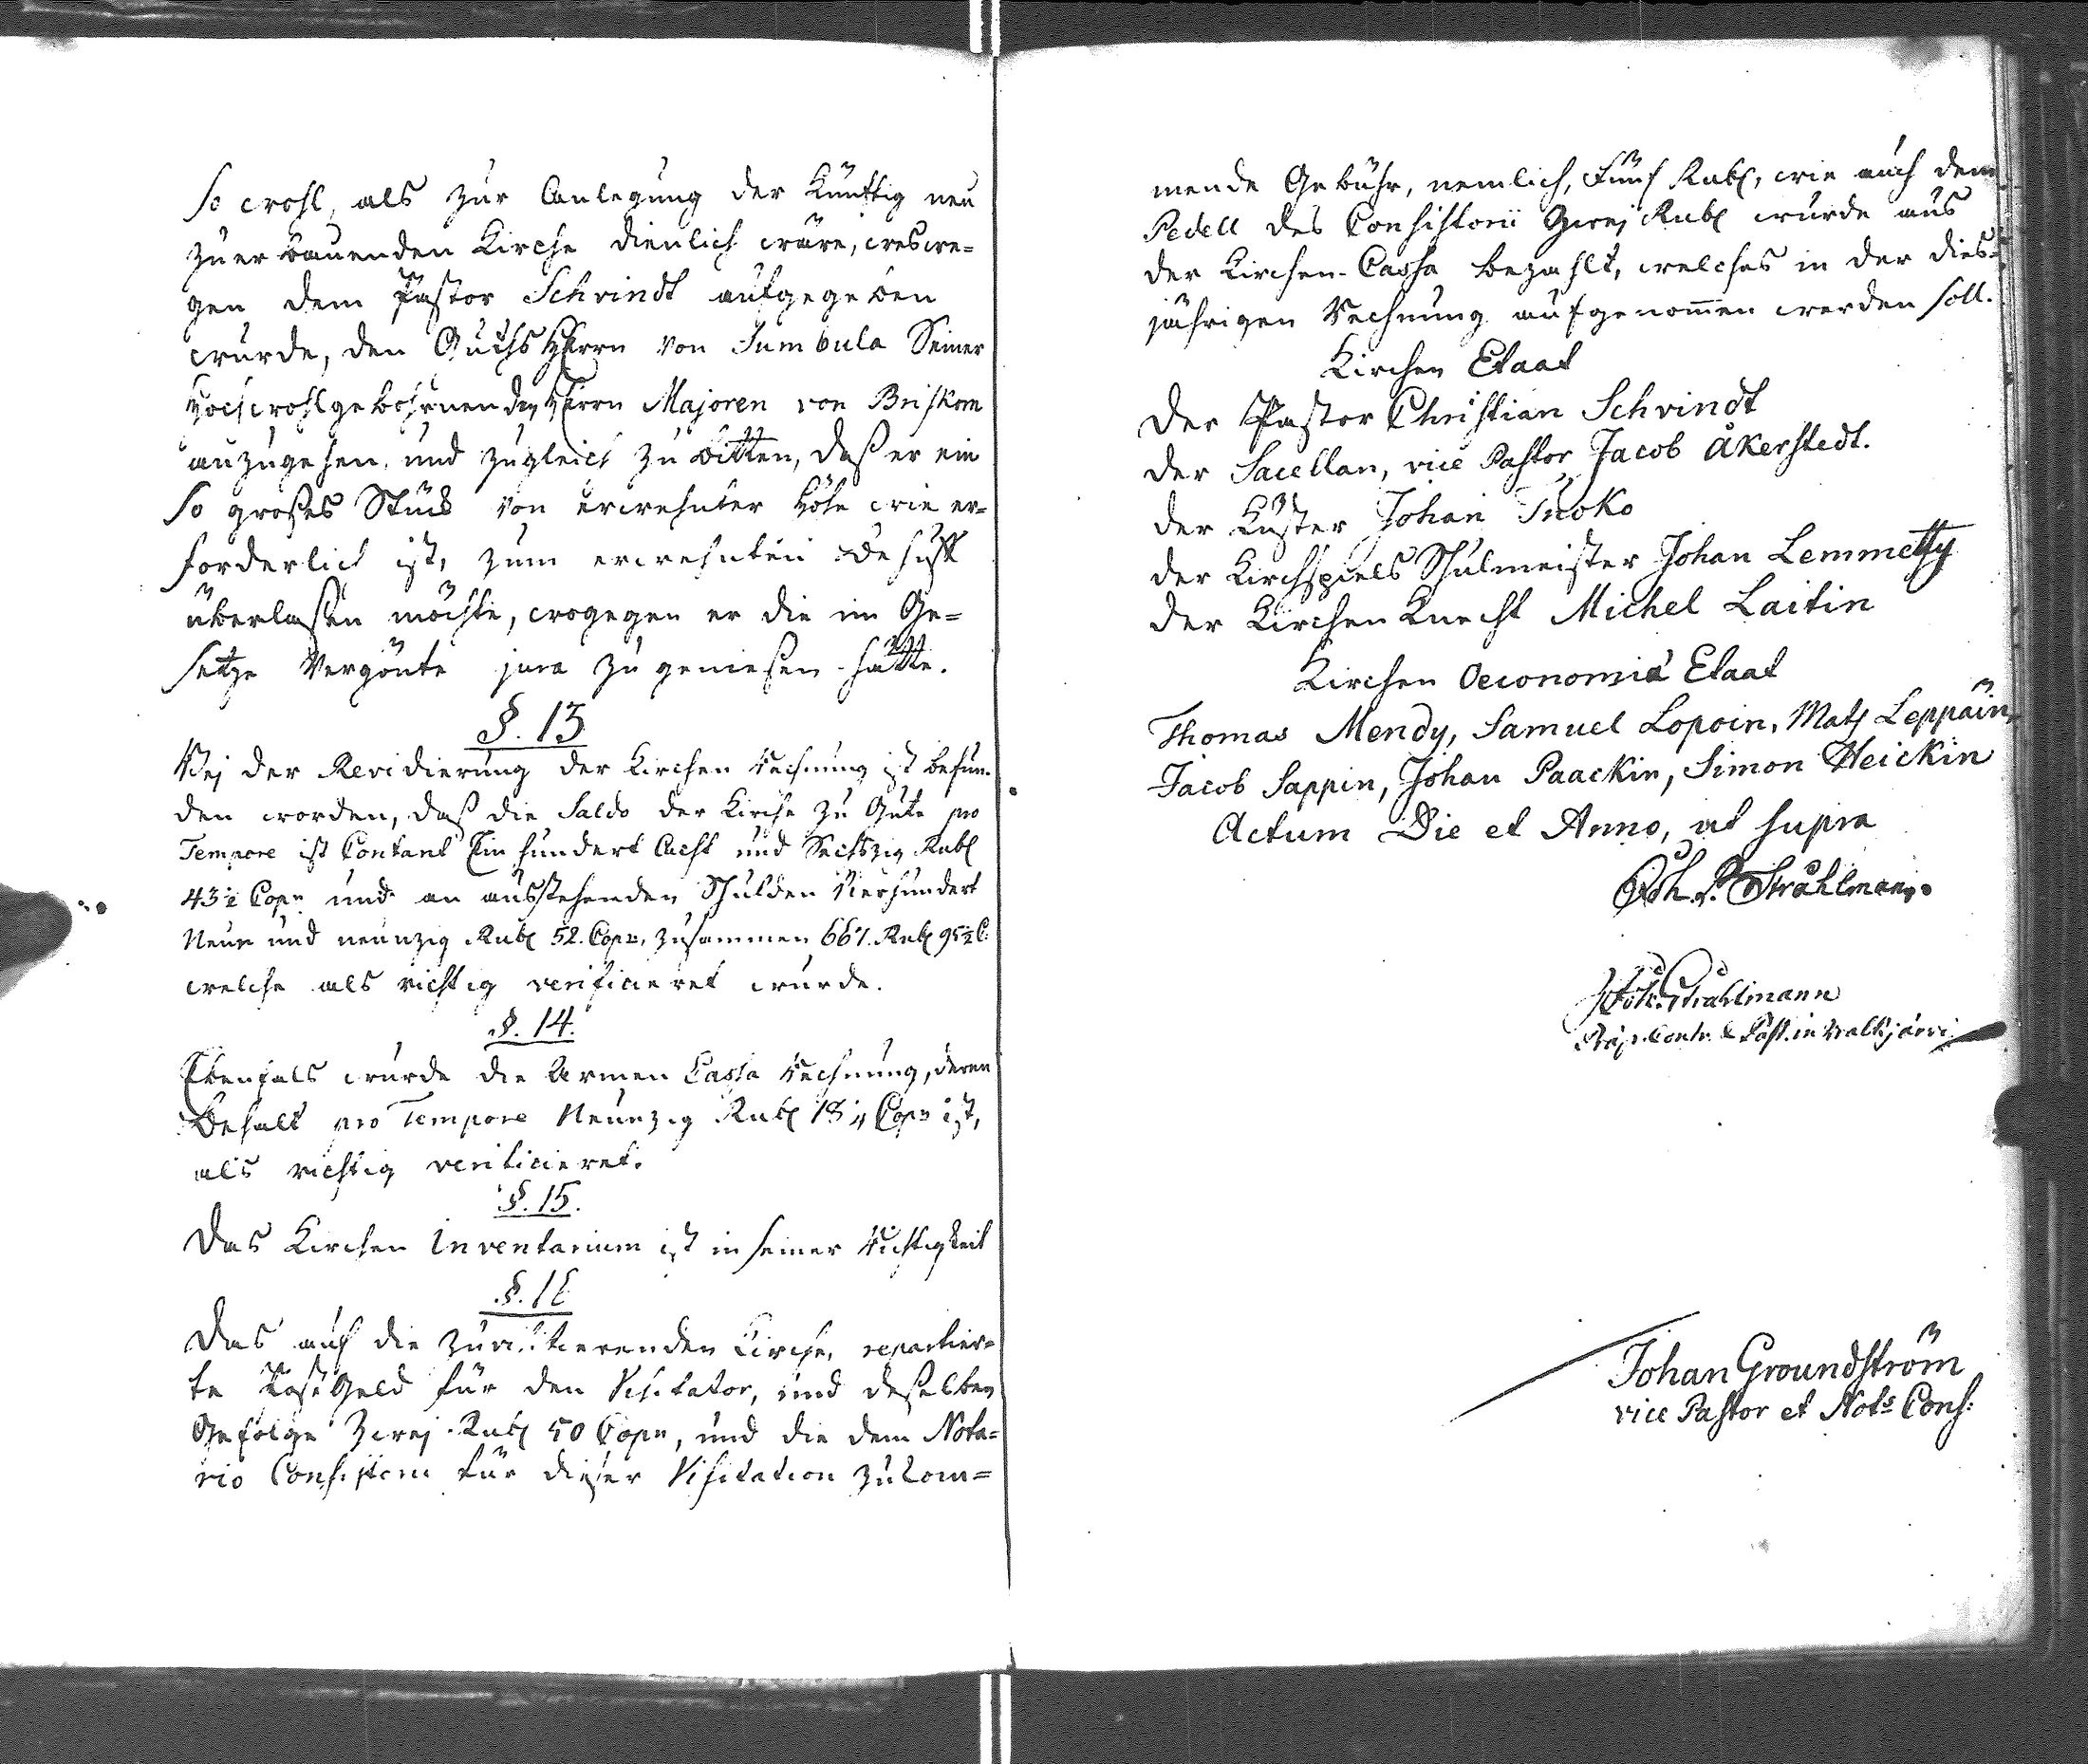 so wohl, als zur Anlegung der künftig neu
zu erbauenden Kirche dienlich wäre, weswe=
gen dem Pastor Schvindt aufgegeben
wurde, den Guths Herrn von Sumbula Seiner
Hochwohlgebohrnen den Herrn Majoren von Briskorn
anzugehen, und zugleich zu bitten, daß er ein
so großes Stück von erwehnter Höhe wie er=
forderlich ist, zum erwehnten Behuff
überlaßen möchte, wogegen er die im Ge=
setze Vergönte jura zu genießen hätte.
§. 13
Bej der Revidierung der Kirchen Rechnung ist befun=
den worden, daß die Saldo der Kirche zu Gute pro
Tempore ist Contant Ein hundert Acht und Sechszig Rubl
43½ Copn und an ausstehenden Schulden Vierhundert
Neun und neunzig Rubl 52. Copn, zusammen 667. Rubl 95½ C:
welche als richtig verificieret wurde.
§. 14.
Ebenfals wurde die Armen Cassa Rechnung, deren
Behalt pro Tempore Neunzig Rubl Copn ist,
als richtig verificieret.
§. 15.
Das Kirchen Inventarium ist in seiner Richtigkeit
§. 16
Das auf die zu visitierenden Kirche, repartier=
te Geld für den Visitator, und deßelben
Gefolge Zwej Rubl 50 Copn, und die dem Nota=
rio Consistorii für dieser Visitation zukom=
mende Gebühr, nemlich, Fünf Rubl, wie auch dem
Pedell des Consistorii Zwej Rubl wurde aus
der Kirchen-Cassa bezahlt, welches in der dies=
jährigen Rechnung aufgenom̄en werden soll.
Kirchen Etaat
Der Pastor Christian Schvindt
der Sacellan, vice Pastor Jacob Åkerstedt.
der Küster Johan Tuoko
der Kirchspiels Schulmeister Johan Lemmetty
der Kirchen Knecht Michel Laitin
Kirchen Oeconomiæ Etaat
Thomas Mendy, Samuel Lopoin, Mats Leppäin,
Jacob Sappin, Johan Paackin, Simon Heickin
Actum Die et Anno, ut supra
Joh. P. Stråhlman.
Strahlmann
Präp. Contr. & Past. in Valkjärvi
Johan Groundström
vice Pastor et Nots Cons: